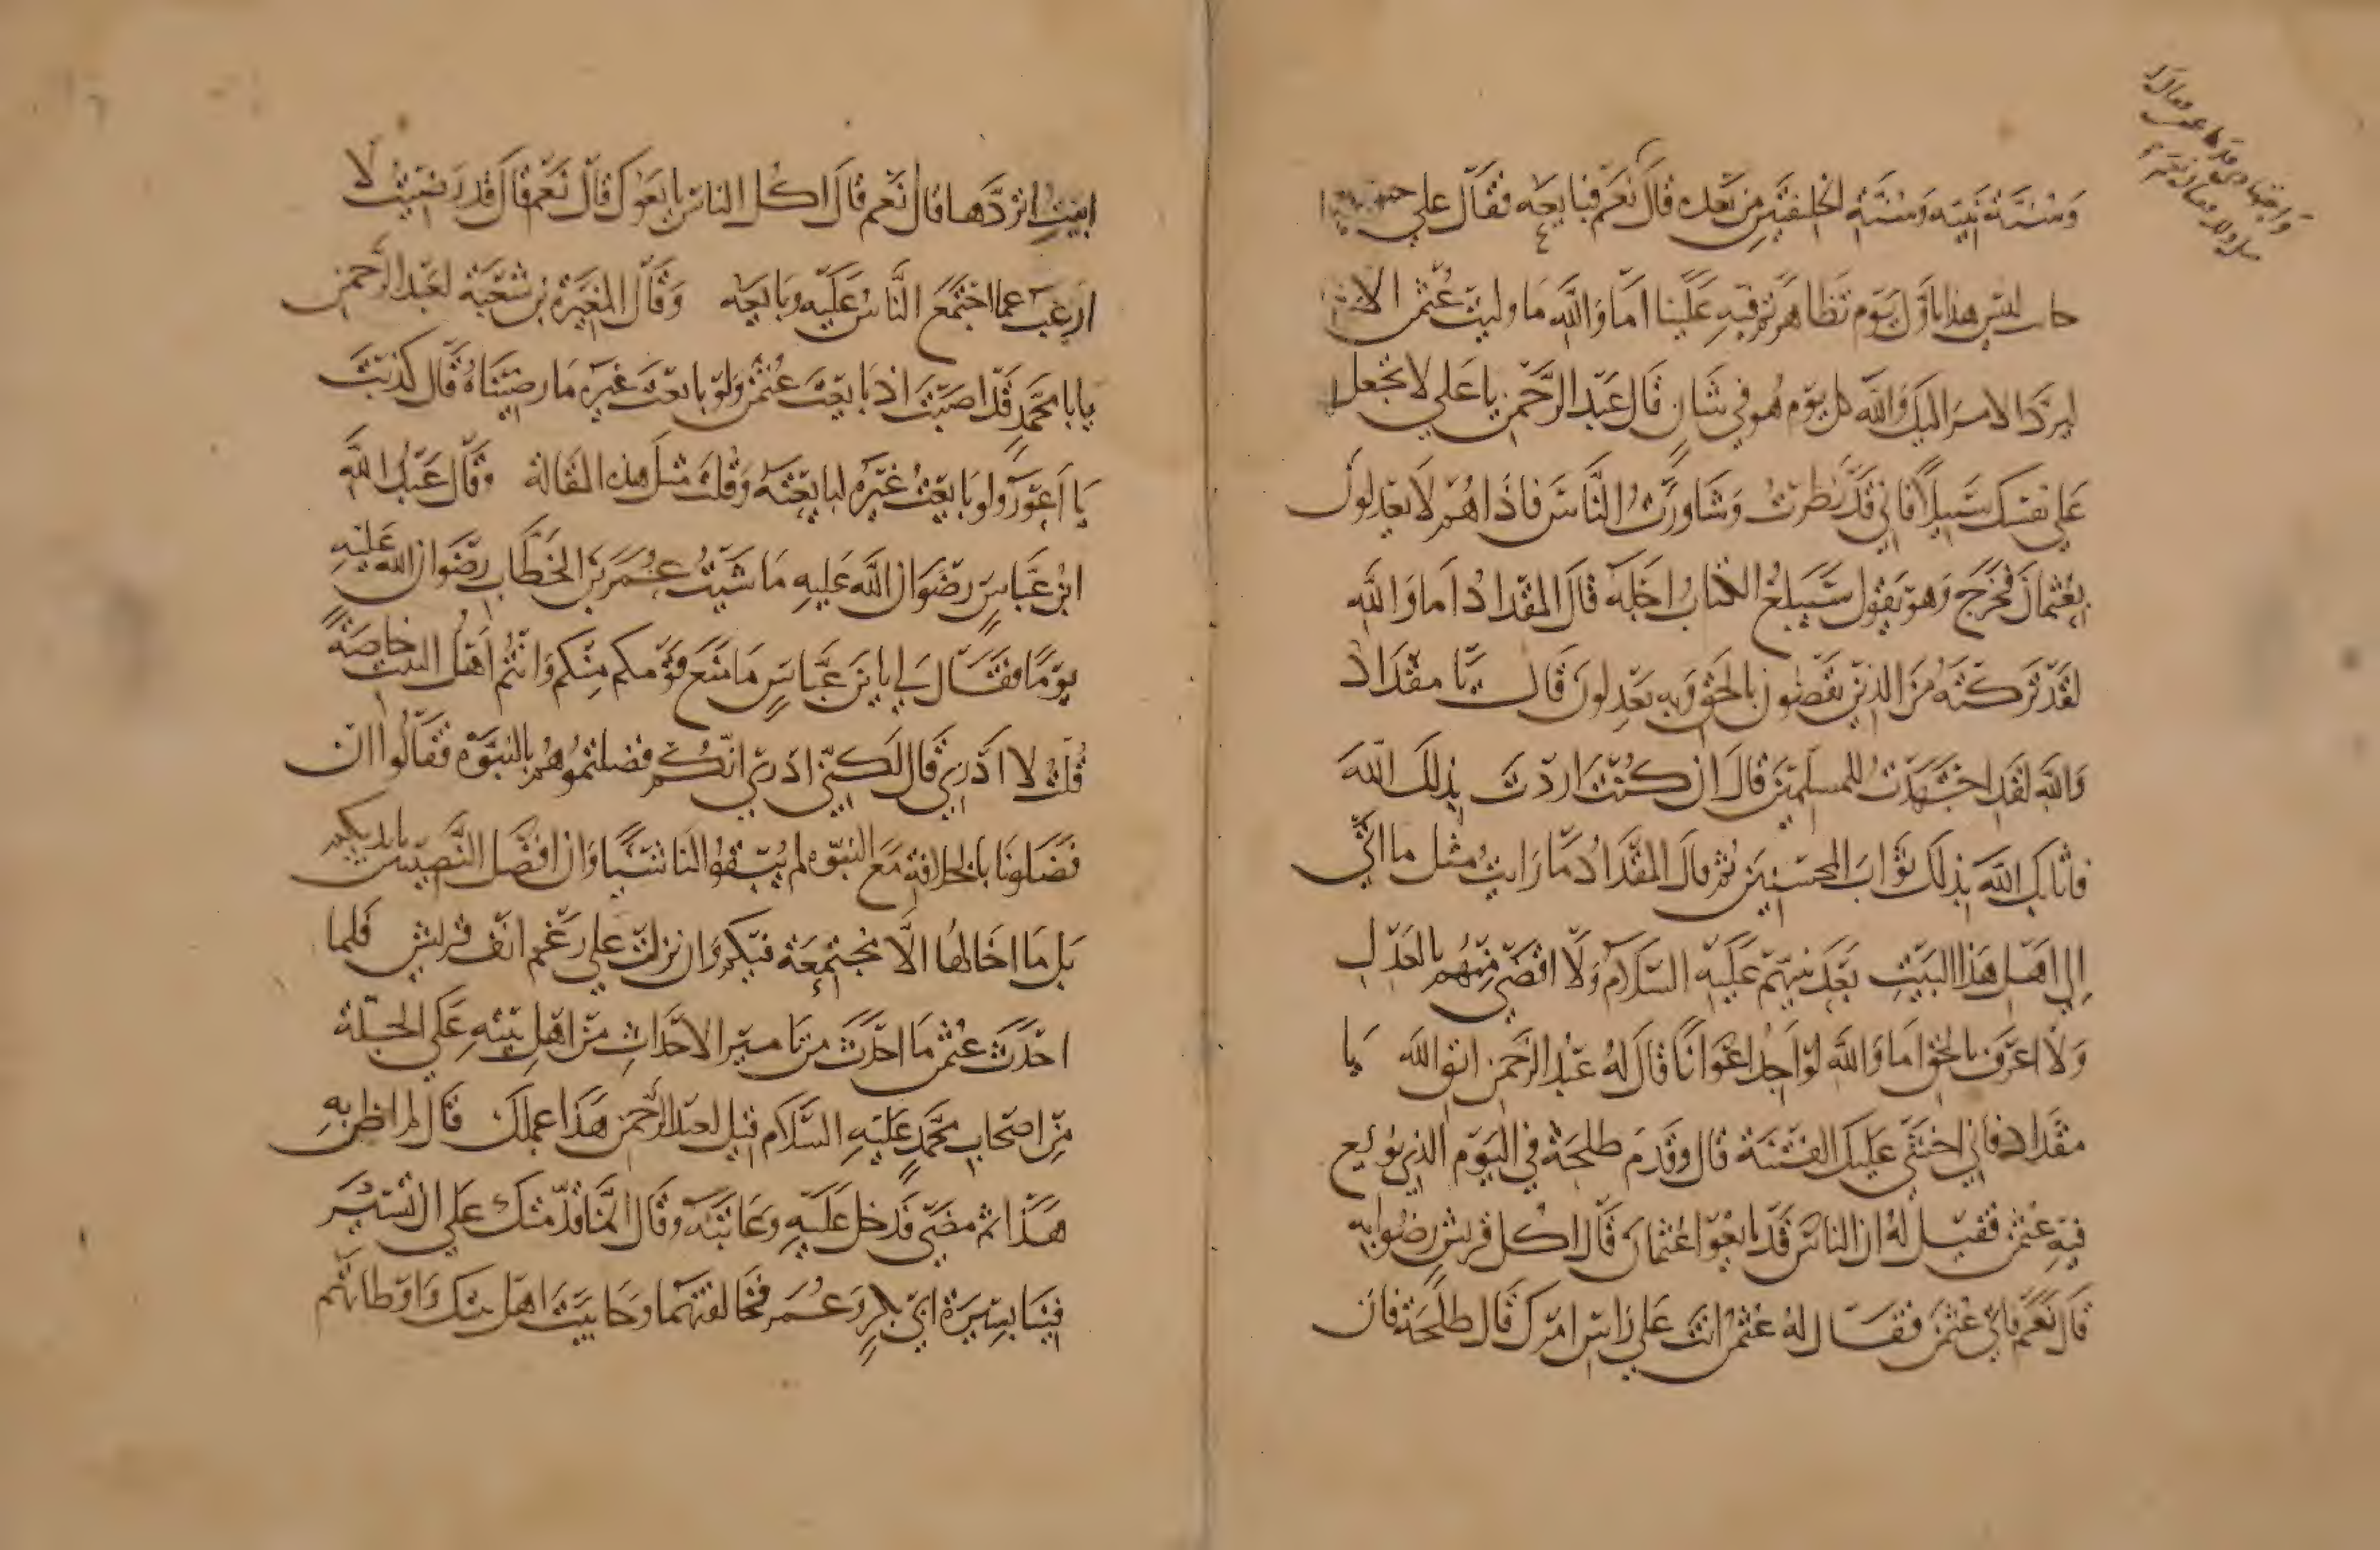 وسنة نبيه وسنة الخليفتين من بعده قال نعم فبايعه فقال علي
ليس هذا باول يوم تظاهرتم فيه علينا اما والله ما وليت عثمن الا
ليرد الامر اليك والله كل يوم هو في شان قال عبد الرحمن يا علي لا تجعل
علي نفسك سبيلا فاني قد نظرت وشاورت الناس فاذا هم لا يعدلون
بعثمان فخرج وهو يقول سيبلغ الكتاب اجله قال المقداد اما والله
لقد تركته من الذين يقضون بالحق وبه يعدلون قال يا مقداد
والله لقد اجتهدت للمسلمين قال ان كنت اردت بذلك الله
فاثابك الله بذلك ثواب المحسنين ثم قال المقداد ما رايت مثل ما اتي
الي اهل هذا البيت بعد نبيهم عليه السلام ولا اقضي منهم بالعدل
ولا اعرف بالحق اما والله لو اجد اعوانا قال له عبد الرحمن اتق الله يا
مقداد فاني اخشي عليك الفتنة قال وقدم طلحة في اليوم الذي بويع
فيه عثمن فقيل له ان الناس قد بايعوا عثمان قال اكل قريش رضوا به
قال نعم فاتي عثمن فقال له عثمن انت علي راس امرك قال طلحة فان
ابيت اتردها قال نعم قال اكل الناس بايعوك قال نعم قال قد رضيت لا
ارغب عما اجتمع الناس عليه وبايعه وقال المغيرة بن شعبة لعبد الرحمن
يابا محمد قد اصبت اذ بايعت عثمن ولو بايعت غيره ما رضيناه قال كذبت
يا اعور ولو بايعت غيره لبايعته وقلت مثل هذه المقالة وقال عبد الله
ابن عباس رضوان الله عليه ماشيت عمر بن الخطاب رضوان الله عليه
يوما فقال لي يا بن عباس ما منع قومكم منكم وانتم اهل البيت خاصة
قلت لا ادري قال لكني ادري انكم فضلتموهم بالنبوة فقالوا ان
فضلونا بالخلافة مع النبوه لم يبقوا لنا شيا وان افضل النصيبين بايديكم
بل ما اخالها الا مجتمعة فيكم وان نزلت علي رغم انف قريش فلما
احدث عثمن ما احدث من تامير الاحداث من اهل بيته علي الجلة
من اصحاب محمد عليه السلام قيل لعبد الرحمن هذا عملك قال لم اظن به
هذا ثم مضي فدخل عليه وعاتبه وقال انما قدمتك علي ان تسير
فينا بسيرة ابي بكر وعمر فخالفتهما وحابيت اهل بيتك واوطاتهم